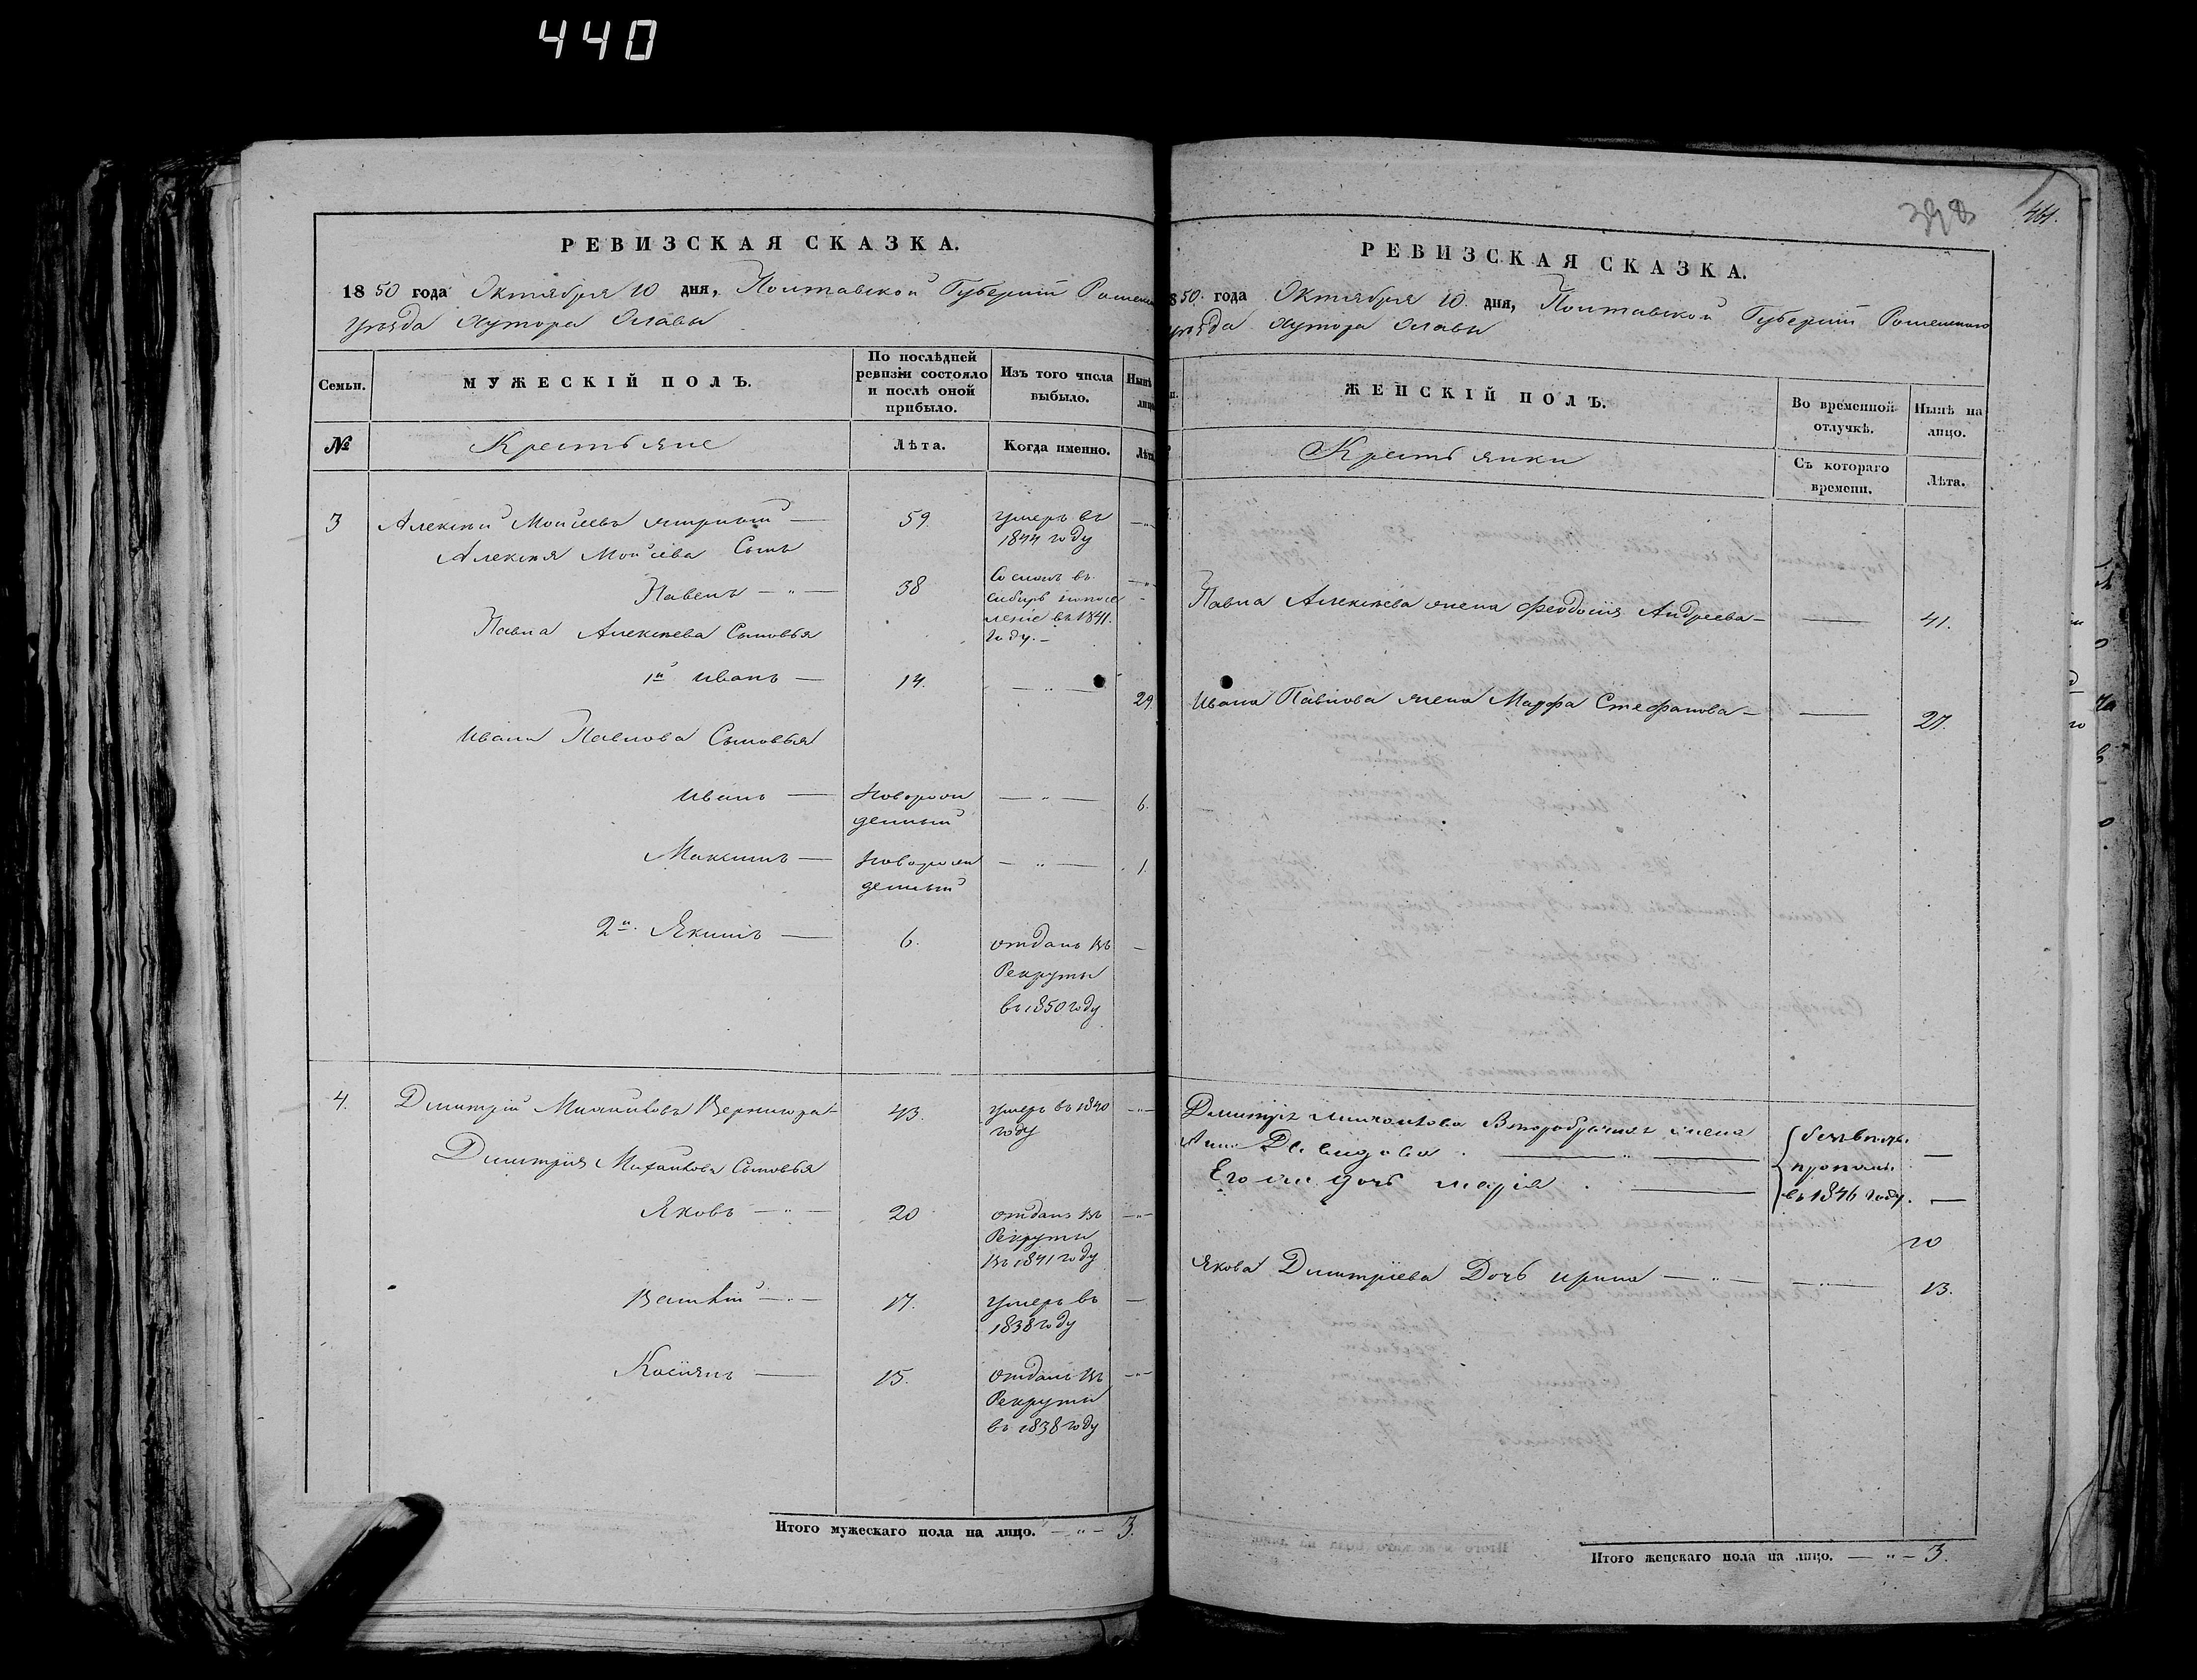 440
РЕВИЗСКАЯ СКАЗКА.
1850 года Октября 10 дня, Полтавской Губерніи
уѣзда хутора Славы
Семьи.
МУЖЕСКІЙ ПОЛЪ.
По послѣдней ревизіи состояло и послѣ оной прибыло.
Изъ того числа выбыло.
№
Крестьяне
Лѣта.
Когда именно.
3 Алексѣй Моисеевъ — 59. умеръ въ
1844 году
Алексѣя Моисѣева Сынъ
Павелъ — " — 38 Сосланъ въ
сибирь на посе
леніе въ 1841.
году. —
Павла Алексѣева Сыновья
1й Иванъ — 14. — " — 29.
Ивана Павлова Сыновья
Иванъ — Новорож
денный — " — 6.
Максимъ — Новорож
денный — " — 1.
2й. Якимъ — 6. отданъ въ —
Рекруты
въ 1850 году
4. Дмитрій Михайловъ Вернигора — 43. умеръ въ 1840 — " —
году
Дмитрія Михайлова Сыновья
Яковъ — " — 20 отданъ въ — " —
Рекруты
въ 1841 году
— " — 17. умеръ въ —
1838 году
Касіянъ — 15. отданъ въ — " —
Рекруты
въ 1838 году
Итого мужескаго пола на лицо. — " — 3.
398 461.
РЕВИЗСКАЯ СКАЗКА.
850. года Октября 10. дня, Полтавской Губерніи Роменскаго
уѣзда хутора Славы
ЖЕНСКІЙ ПОЛЪ.
Во временной отлучкѣ.
Нынѣ на лицо.
Крестьянки
Съ котораго времени.
Лѣта.
Павла Алексѣева жена Феодосія Андреева — — 41.
Ивана Павлова жена Марфа Стефанова — — 27.
Дмитрія Михайлова Второбрачная жена
Анна Давидова. — " — безъ вѣсти —
Его же дочь марія. — пропали
въ 1846 году. —
Якова Дмитріева Дочь ирина — " — — " — 13.
Итого женскаго пола на лицо. — " — 3.